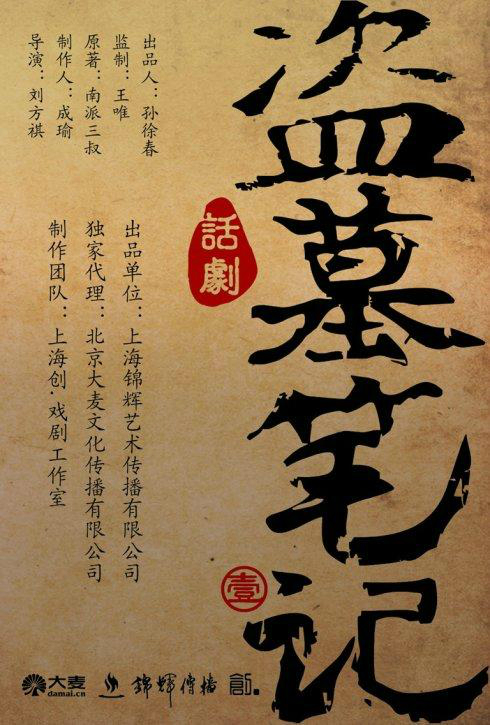 盗墓笔记
話劇
壹
出品人：孙徐春
监制：王唯
原著：南派三叔
制作人：成瑜
导演：刘方祺
出品单位：上海锦辉艺术传播有限公司
独家代理：北京大麦文化传播有限公司
制作团队：上海创·戏剧工作室
大麦
damai.cn
錦輝傳播
創